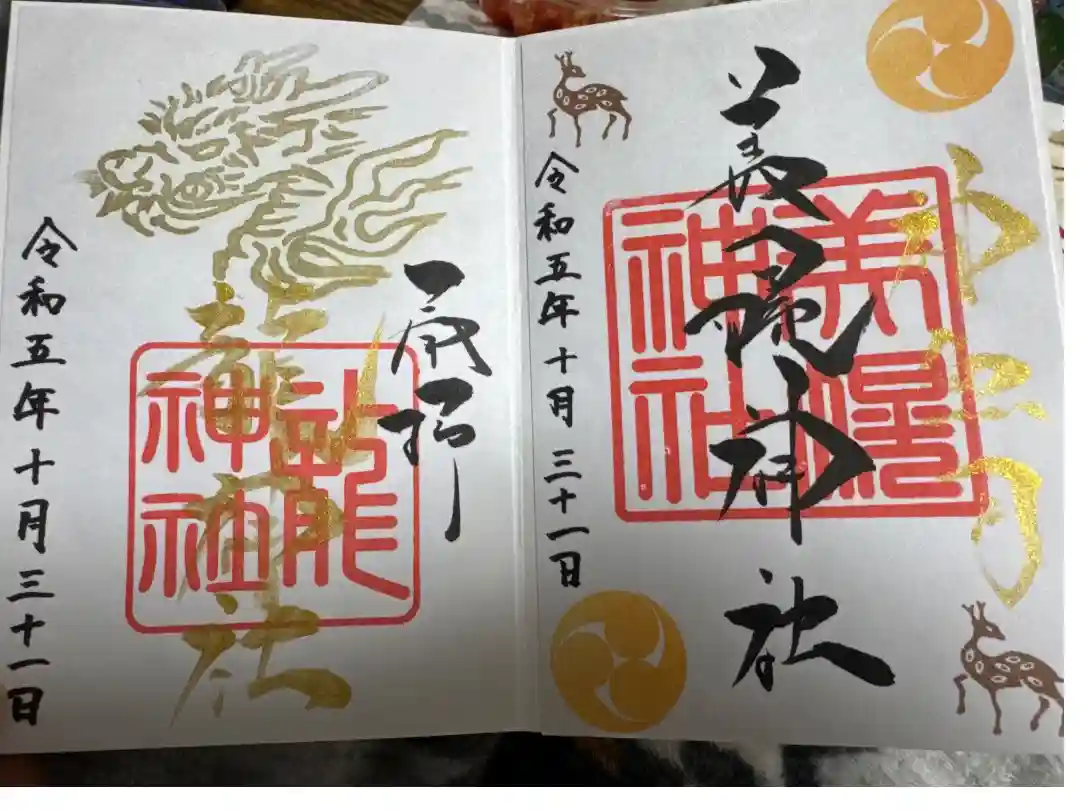 神無月
美幌神社
美幌
神社
令和五年十月三十一日
奉拝
龍神社
龍
神社
令和五年十月三十一日